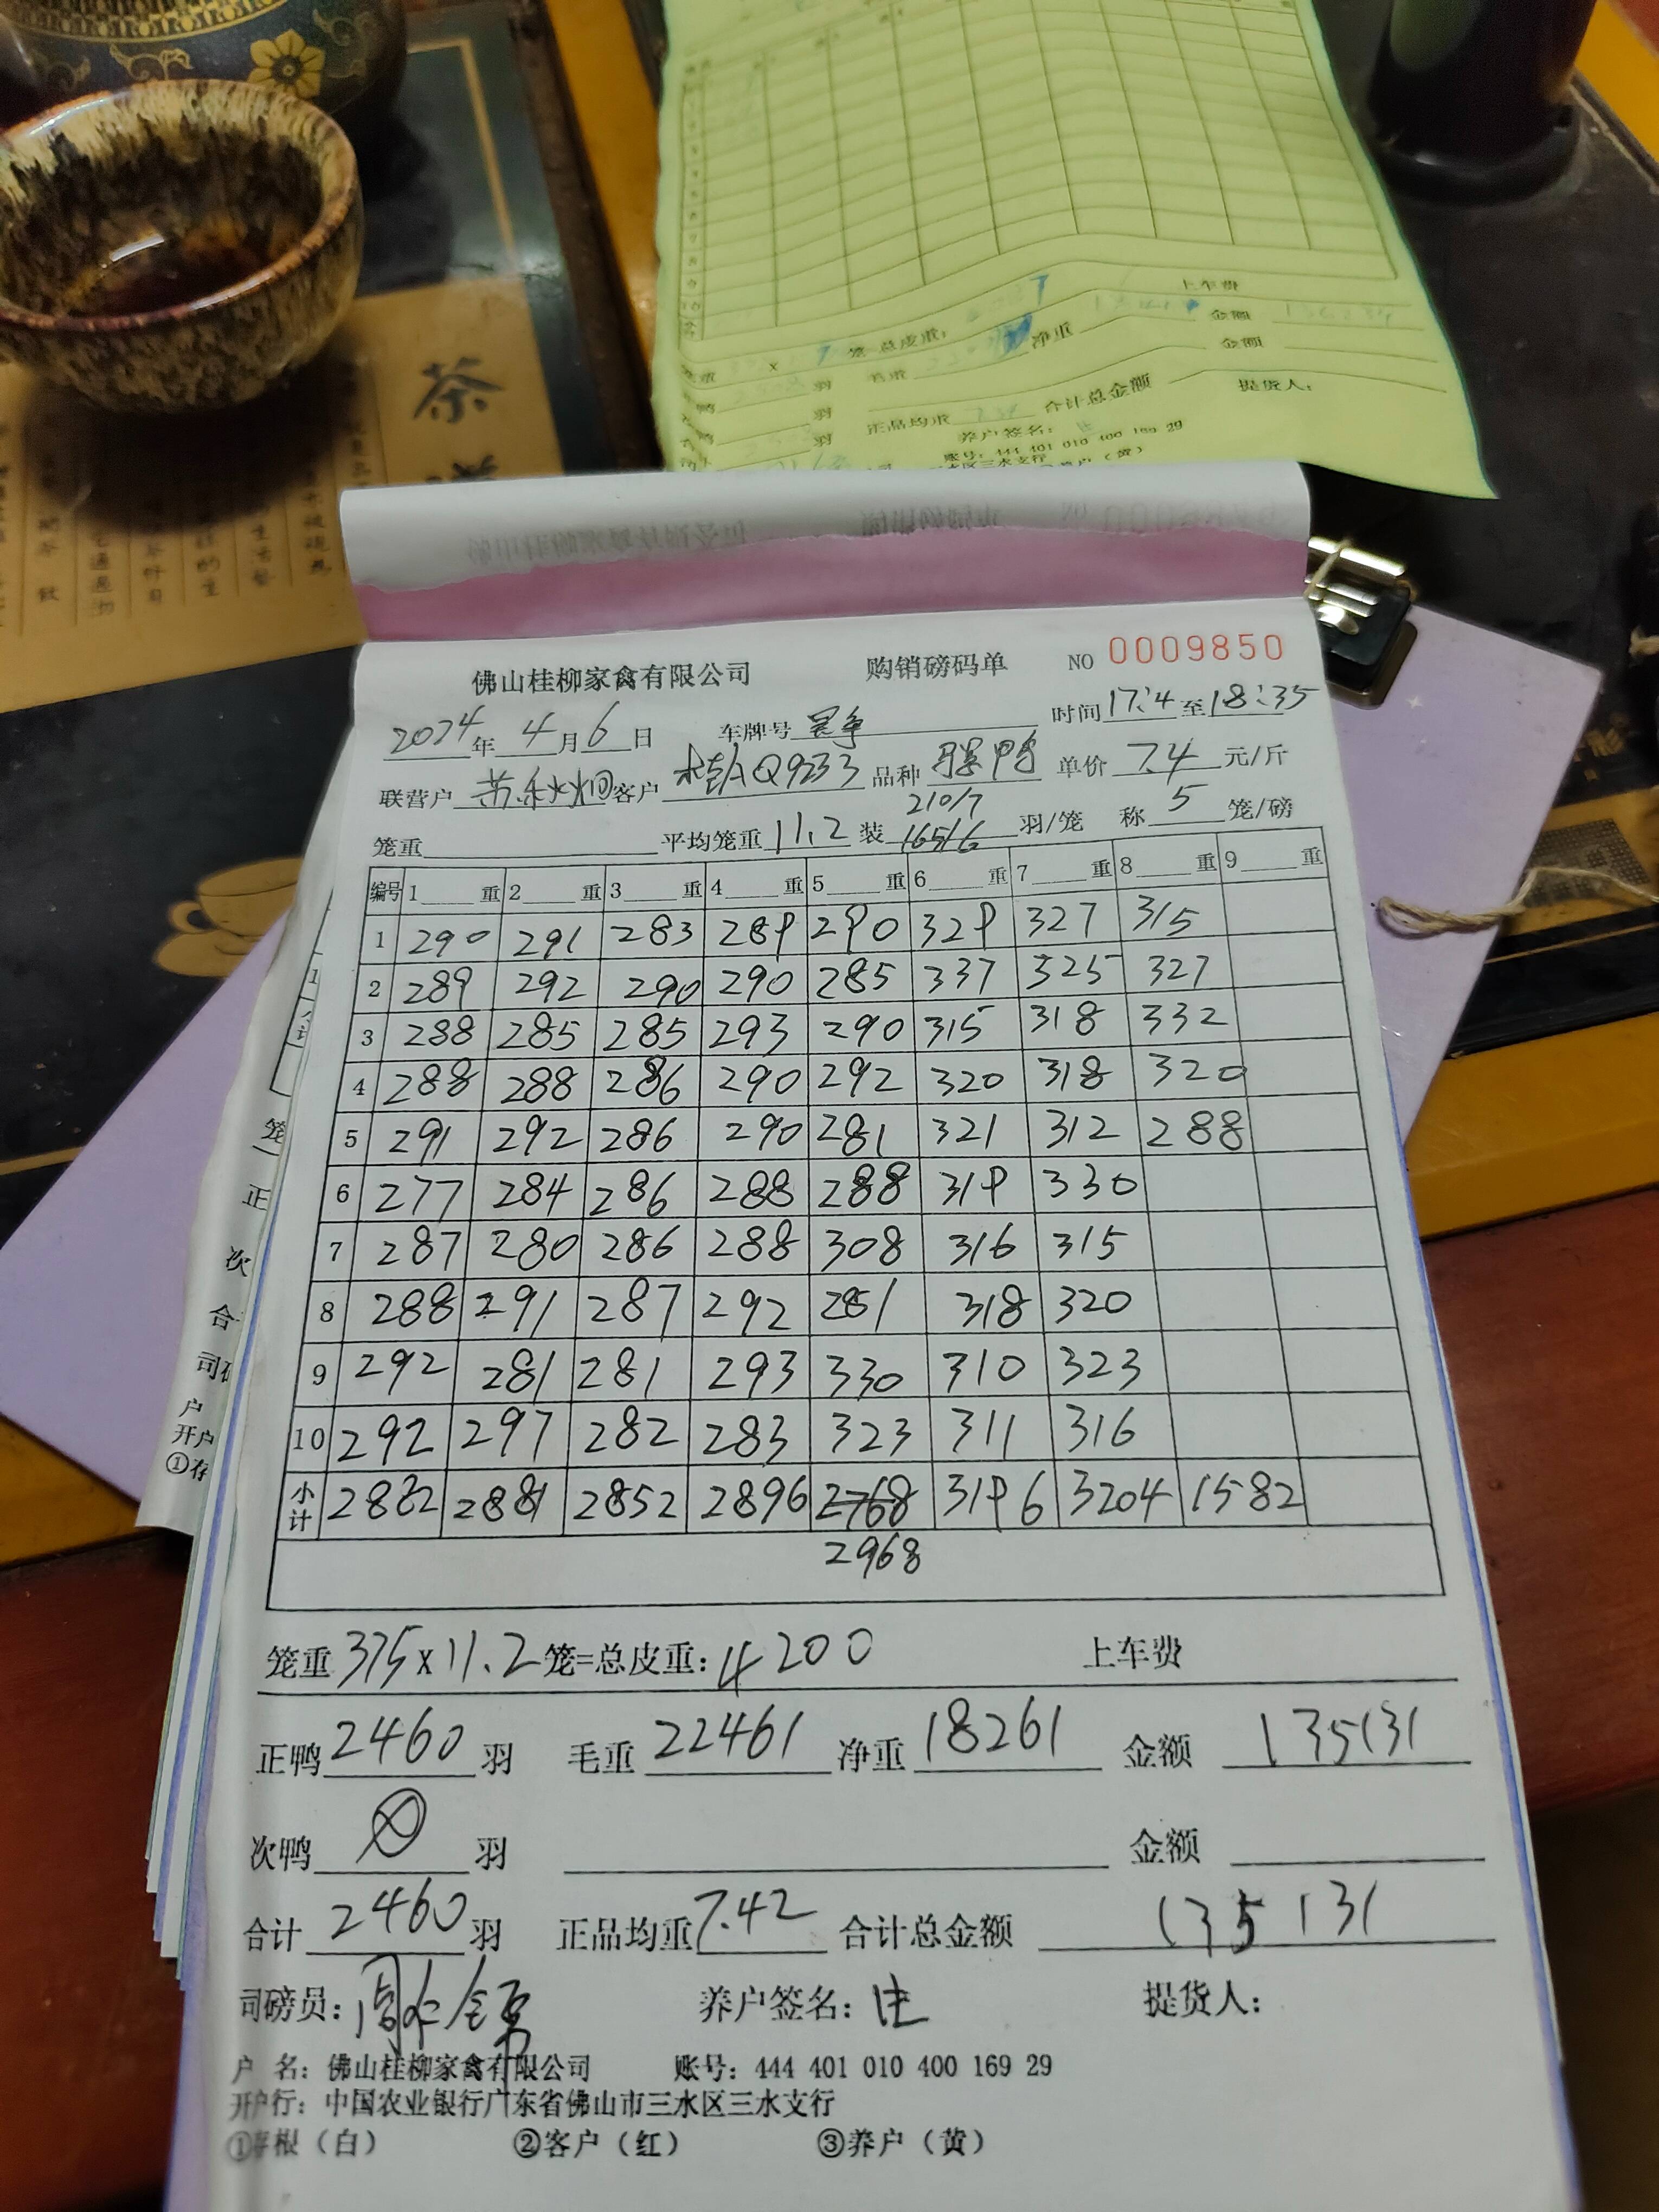 茶
上车费
笼 总皮重:
金额
毛重
净重
羽
金额
羽
正品均重 合计总金额
提货人:
羽
养户签名:
账号: 444 401 010 400 169 29
佛山桂柳家禽有限公司 购销磅码单 NO 0009850
2024年4月6日 车牌号 时间17:4至18:35
联营户 客户 桂AQ9233 品种 单价7.4元/斤
210/7
笼重 平均笼重11.2装165/6羽/笼 称5笼/磅
编号 1 重 2 重 3 重 4 重 5 重 6 重 7 重 8 重 9 重
1 290 291 283 289 290 329 327 315
2 289 292 290 290 285 337 325 327
3 288 285 285 293 290 315 318 332
4 288 288 286 290 292 320 318 320
5 291 292 286 290 281 321 312 288
6 277 284 286 288 288 319 330
7 287 280 286 288 308 316 315
8 288 291 287 292 281 318 320
9 292 281 281 293 330 310 323
10 292 297 282 283 323 311 316
小计 2882 2881 2852 2896 2768 3196 3204 1582
2968
笼重375x11.2笼=总皮重:4200 上车费
正鸭2460羽 毛重22461净重18261 金额135131
次鸭 羽 金额
合计2460羽 正品均重7.42合计总金额135131
司磅员: 养户签名: 提货人:
户 名: 佛山桂柳家禽有限公司 账号: 444 401 010 400 169 29
开户行: 中国农业银行广东省佛山市三水区三水支行
①存根(白) ②客户(红) ③养户(黄)